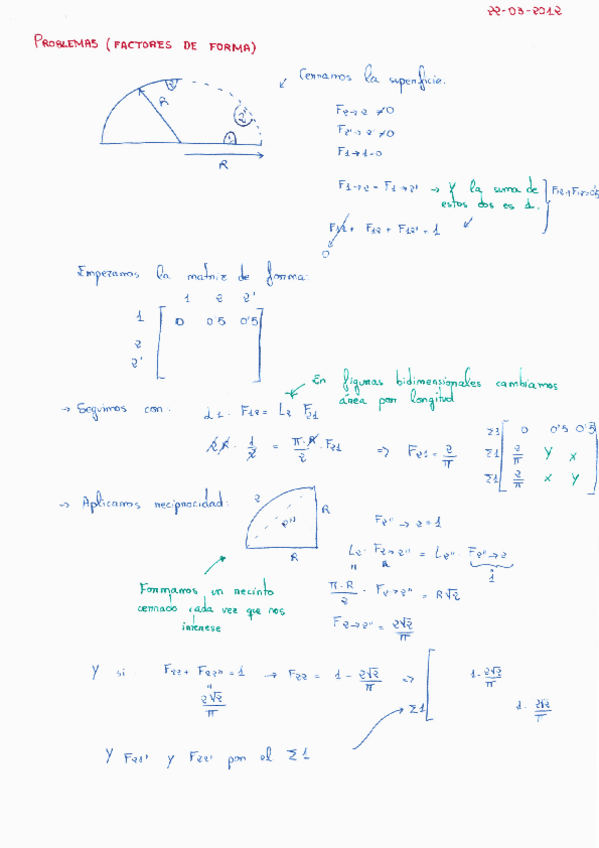 22-03-2012
PROBLEMAS (FACTORES DE FORMA)
Cerramos la superficie.
2
R
2'
1
R
F2→2 ≠0
F2'→2' ≠0
F1→1=0
F1→2 = F1→2' → Y la suma de
estos dos es 1.
F12+F12'=0'5
F11 + F12 + F12' = 1
0
Empezamos la matriz de forma:
1 2 2'
1 0 0'5 0'5
2
2'
En figuras bidimensionales cambiamos
área por longitud
→ Seguimos con: L1 · F12 = L2 F21
2R · 1/2 = π·R/2 · F21 => F21 = 2/π
Σ1 0 0'5 0'5
Σ1 2/π y x
Σ1 2/π x y
→ Aplicamos reciprocidad:
2
R
2"
R
F2"→2=1
L2 · F2→2" = L2" · F2"→2
1
π·R/2 · F2→2" = R√2
F2→2" = 2√2/π
Formamos un recinto
cerrado cada vez que nos
interese
Y si F22 + F22" = 1 → F22 = 1 - 2√2/π =>
2√2/π
1-2√2/π
Σ1 1-2√2/π
Y F21' y F22' por el Σ1